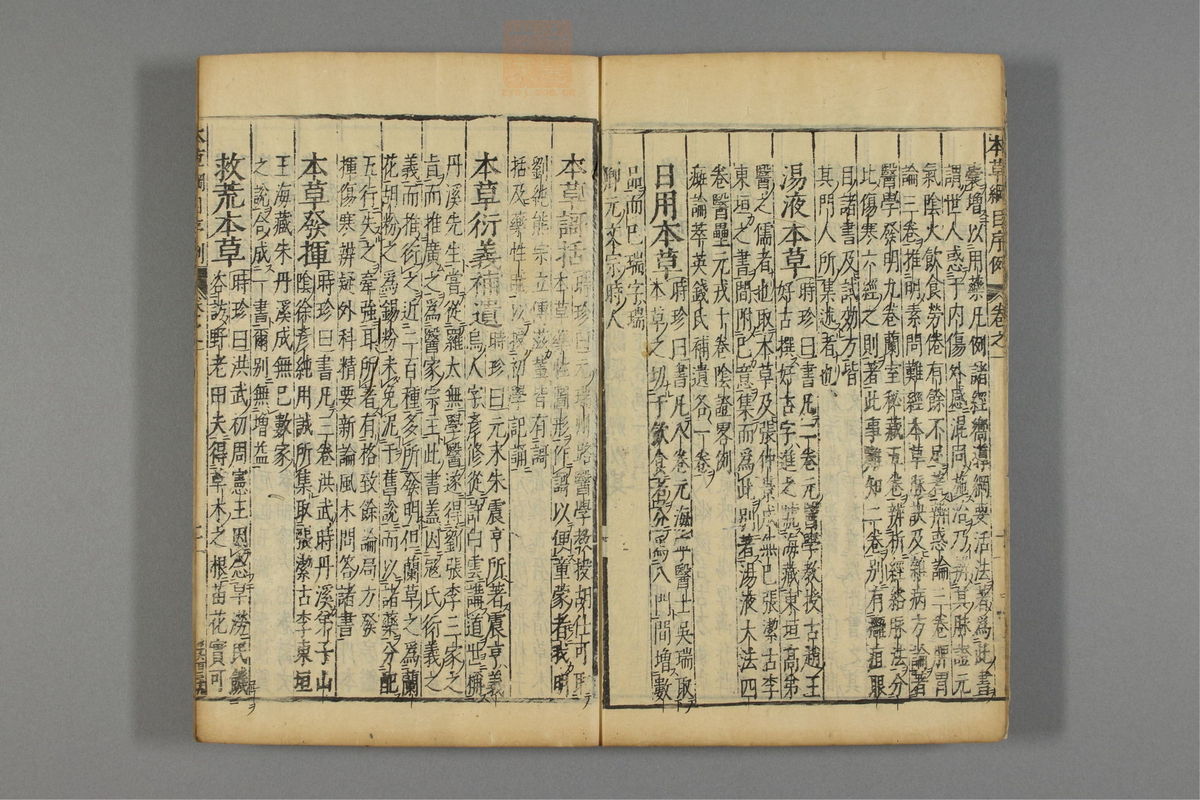 本草綱目序例 卷之一
囊增以用藥凡例諸經嚮導綱要活法者爲此書
謂世人惑于內傷外感混同施治乃辨其脉證元
氣陰火飲食勞倦有餘不足著辨惑論三卷脾胃
論三卷推明素問難經本草脉訣及雜病方論著
醫學發明九卷蘭室秘藏五卷辨析經絡脉法分
比傷寒六經之則著此事難知二卷別有癰疽眼
目諸書及試効方皆
其門人所集述者也
湯液本草 時珍曰書凡二卷元醫學教授古趙王
好古撰好古字進之號海藏東垣高弟
醫之儒者也取本草及張仲景成無已張潔古李
東垣之書間附已意集而爲此別著湯液大法四
卷醫壘元戎十卷陰證畧例
癍論萃英錢氏補遺各一卷
日用本草 時珍曰書凡八卷元海寧醫士吳瑞取
本草之切于飲食者分爲八門間增數
品而已瑞字瑞
卿元文宗時人
本草謌括 時珍曰元瑞州路醫學教授胡仕可取
本草藥性圖形作謌以便童蒙者我明
劉純熊宗立傅滋輩皆有謌
括及藥性賦以授初學記誦
本草衍義補遺 時珍曰元末朱震亨所著震亨義
烏人字彥修從許白雲講道世稱
丹溪先生嘗從羅太無學醫遂得劉張李三家之
旨而推廣之爲醫家宗主此書盖因寇氏衍義之
義而推衍之近二百種多所發明但蘭草之爲蘭
花胡粉之爲錫粉未免泥于舊說而以諸藥分配
五行失之牽強耳所著有格致餘論局方發
揮傷寒辨疑外科精要新論風木問答諸書
本草發揮 時珍曰書凡三卷洪武時丹溪弟子山
陰徐彥純用誠所集取張潔古李東垣
王海藏朱丹溪成無已數家
之說合成一書爾別無增益
救荒本草 時珍曰洪武初周憲王因念旱澇民饑
咨訪野老田夫得草木之根苗花實可